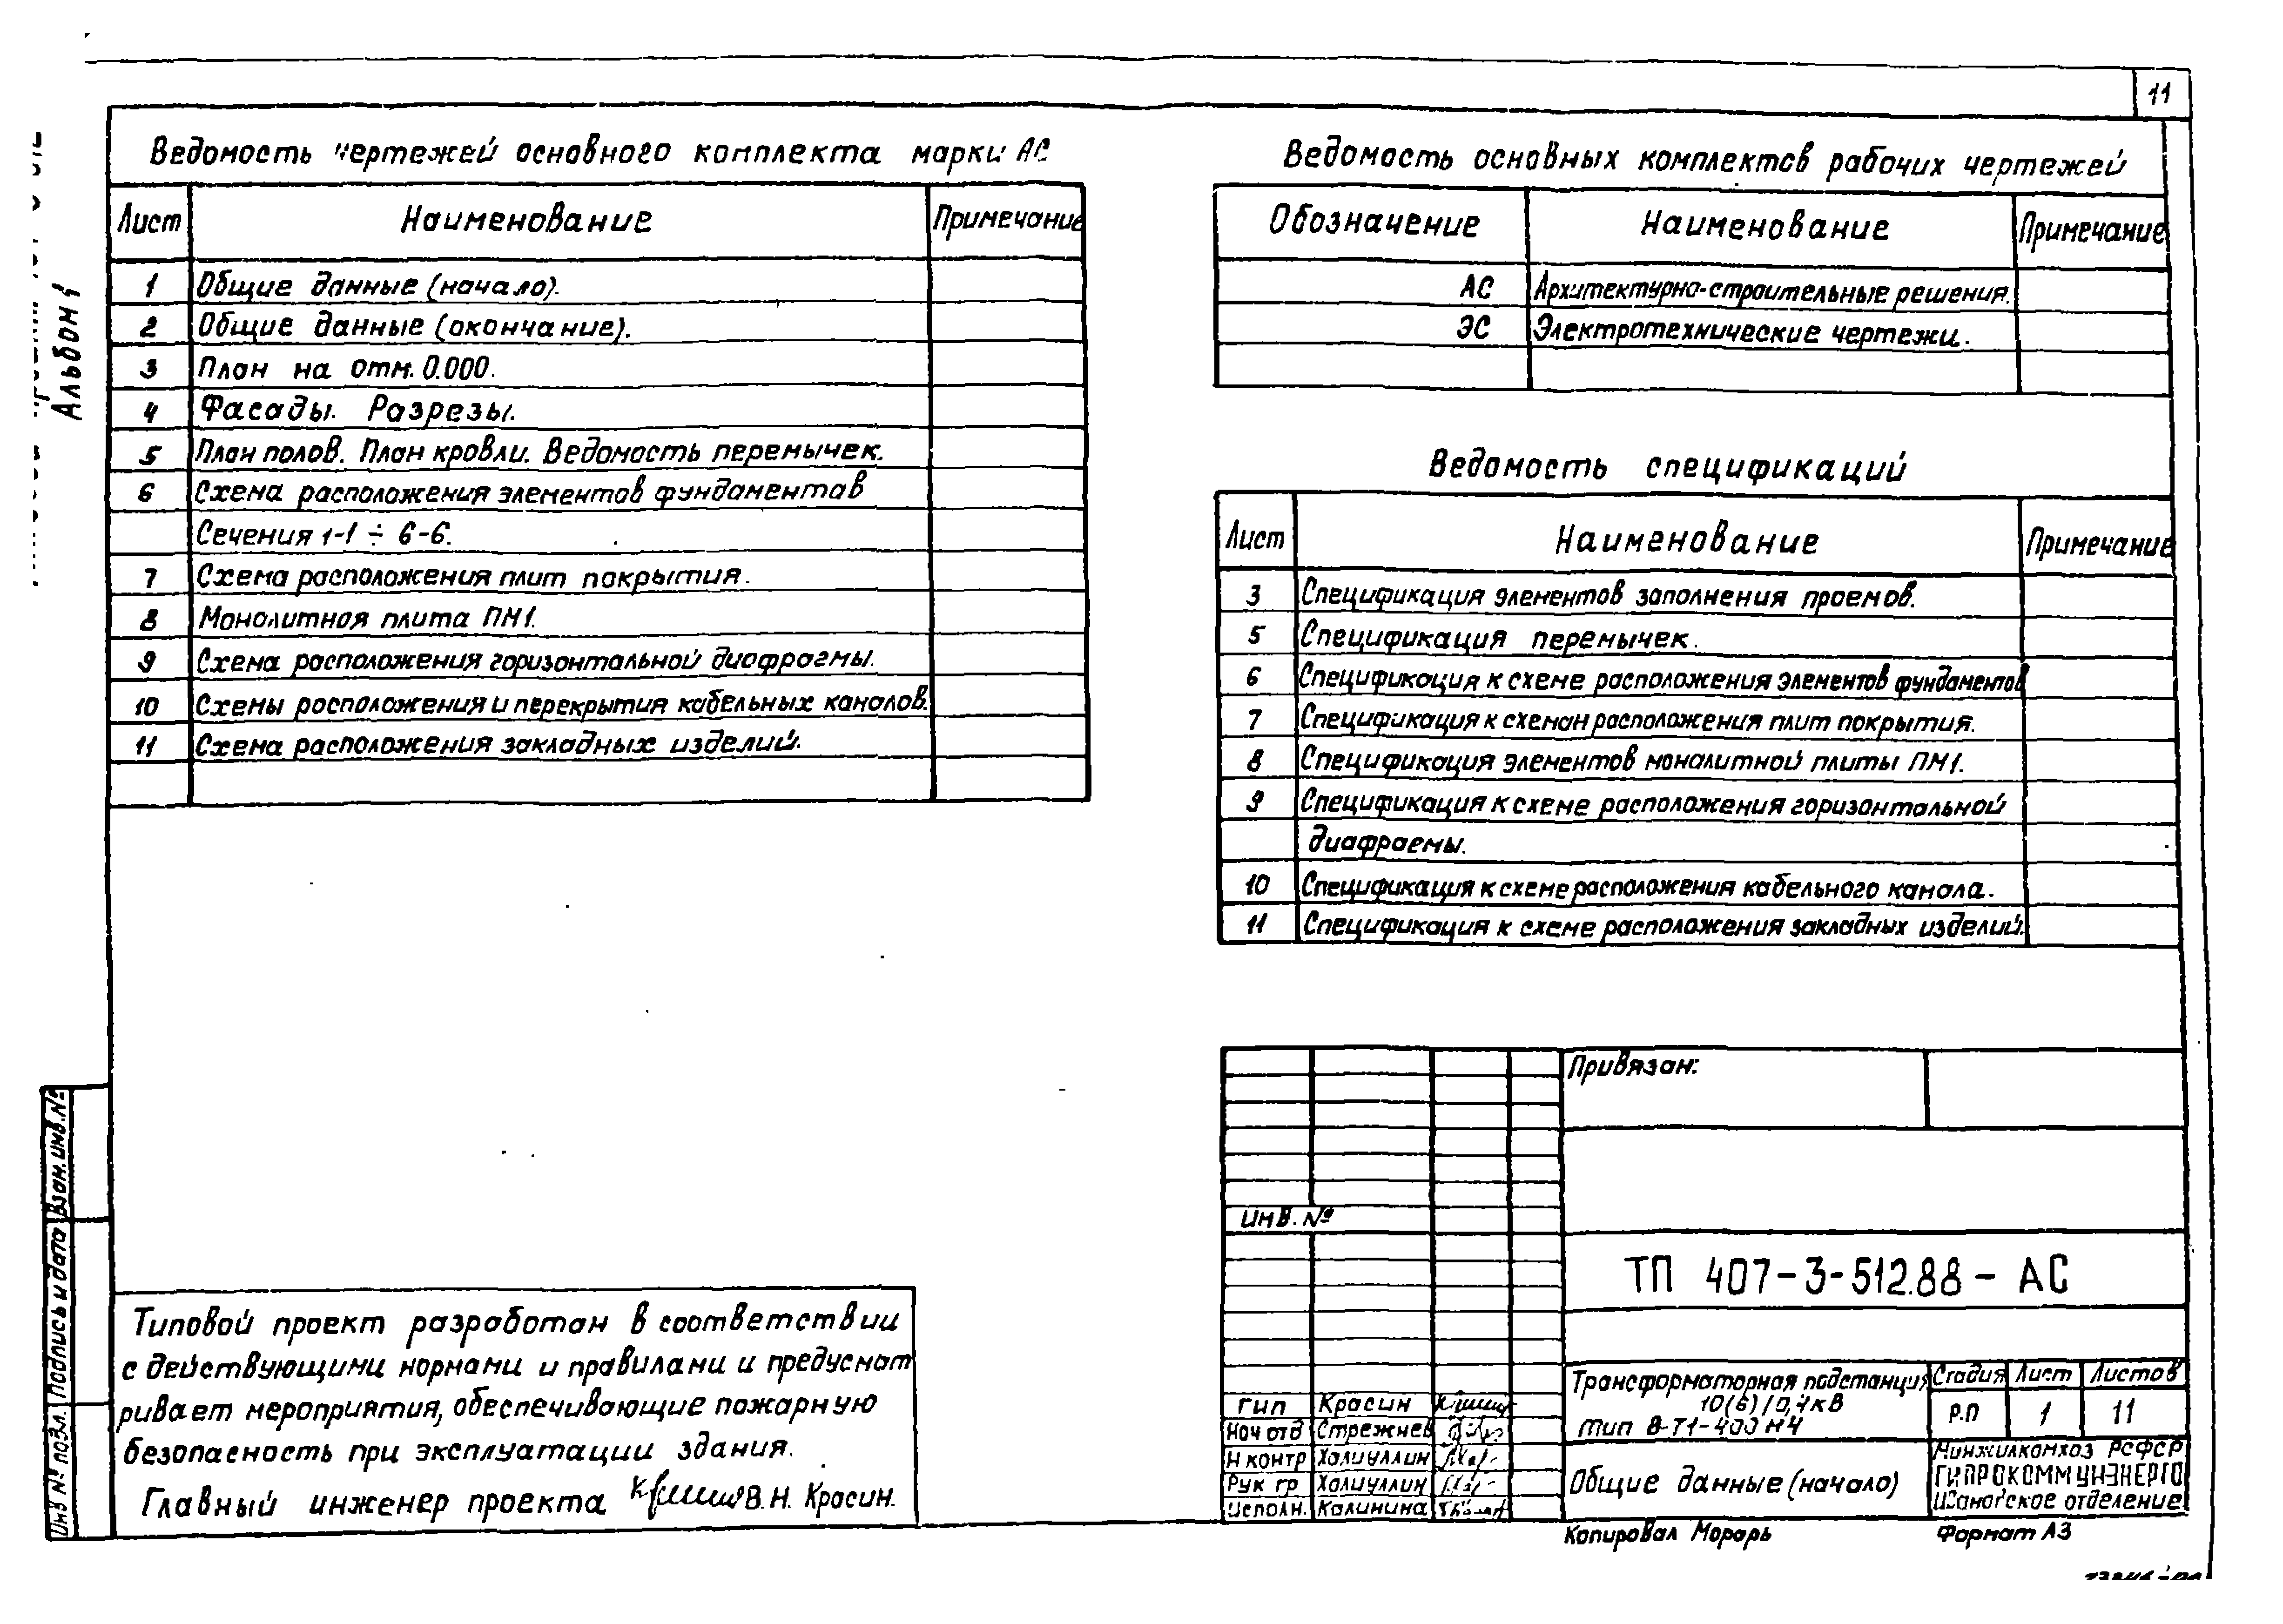 11
Альбом 1
Ведомость чертежей основного комплекта марки АС
Лист Наименование Примечание
1 Общие данные (начало).
2 Общие данные (окончание).
3 План на отм. 0.000.
4 Фасады. Разрезы.
5 План полов. План кровли. Ведомость перемычек.
6 Схема расположения элементов фундаментов
Сечения 1-1 ÷ 6-6.
7 Схема расположения плит покрытия.
8 Монолитная плита ПМ1.
9 Схема расположения горизонтальной диафрагмы.
10 Схемы расположения и перекрытия кабельных каналов.
11 Схема расположения закладных изделий.
Ведомость основных комплектов рабочих чертежей
Обозначение Наименование Примечание
АС Архитектурно-строительные решения.
ЭС Электротехнические чертежи.
Ведомость спецификаций
Лист Наименование Примечание
3 Спецификация элементов заполнения проемов.
5 Спецификация перемычек.
6 Спецификация к схеме расположения элементов фундаментов
7 Спецификация к схемам расположения плит покрытия.
8 Спецификация элементов монолитной плиты ПМ1.
9 Спецификация к схеме расположения горизонтальной
диафрагмы.
10 Спецификация к схеме расположения кабельного канала.
11 Спецификация к схеме расположения закладных изделий.
Взам. инв. №
Подпись и дата
Инв № подл.
Типовой проект разработан в соответствии
с действующими нормами и правилами и предусмат
ривает мероприятия, обеспечивающие пожарную
безопасность при эксплуатации здания.
Главный инженер проекта В. Н. Красин.
Привязан:
Инв. №
ТП 407-3-512.88 - АС
Трансформаторная подстанция
10(6)/0,4кВ
тип В-Т1-400 М4
Стадия Лист Листов
Р.П 1 11
ГИП Красин
Нач отд Стрежнев
Н контр Халиуллин
Рук гр Халиуллин
Исполн. Калинина
Общие данные (начало)
Минжилкомхоз РСФСР
ГИПРОКОММУНЭНЕРГО
Ивановское отделение
Копировал Морарь Формат А3